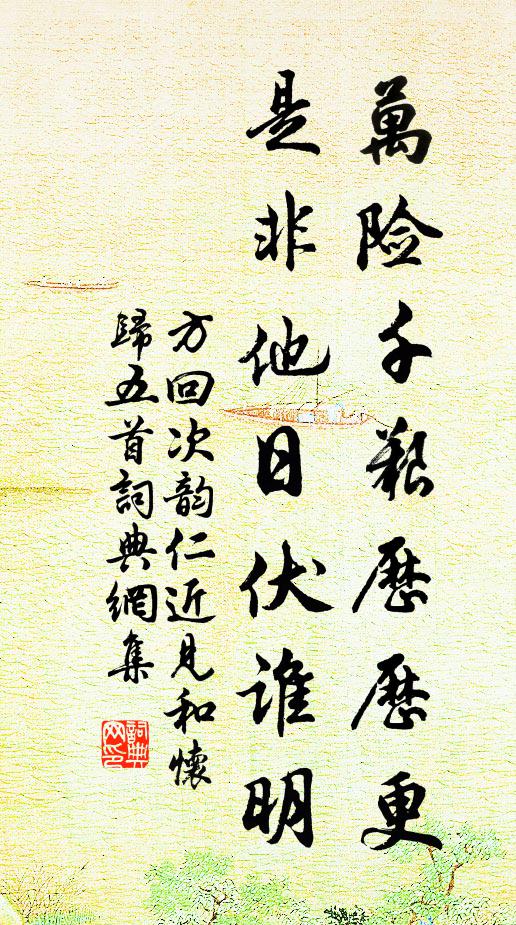 萬险千艱歷歷更
是非他日伏谁明
方回次韵仁近見和懷
歸五首詞典網集
詞典网印